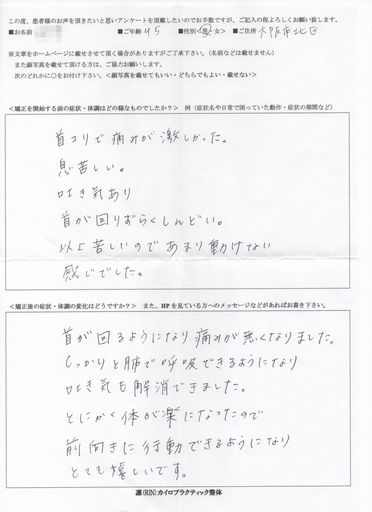 この度、患者様のお声を頂きたいと思いアンケートを頂戴したいのでお手数ですが、ご記入の程よろしくお願い致します。
■お名前 ■ご年齢 45 ■性別 男・女 ■ご住所 大阪市北区
※文章をホームページに載せさせて頂く場合がありますがご了承下さい。(名前などは載せません)
また顔写真を載せて頂ける方は、ご協力お願い致します。
次のどれかに○をお付け下さい。<顔写真を載せてもいい・どちらでもよい・載せない>
<矯正を開始する前の症状・体調はどの様なものでしたか?> 例(症状名や日常で困っていた動作・症状の期間など)
首コリで痛みが激しかった。
息苦しい。
吐き気あり
首が回りずらくしんどい。
以上苦しいのであまり動けない
感じでした。
<矯正後の症状・体調の変化はどうですか?> また、HPを見ている方へのメッセージなどがあればお書き下さい。
首が回るようになり痛みが無くなりました。
しっかりと肺で呼吸できるようになり
吐き気も解消できました。
とにかく体が楽になったので
前向きに行動できるようになり
とても嬉しいです。
凛(RIN)カイロプラクティック整体